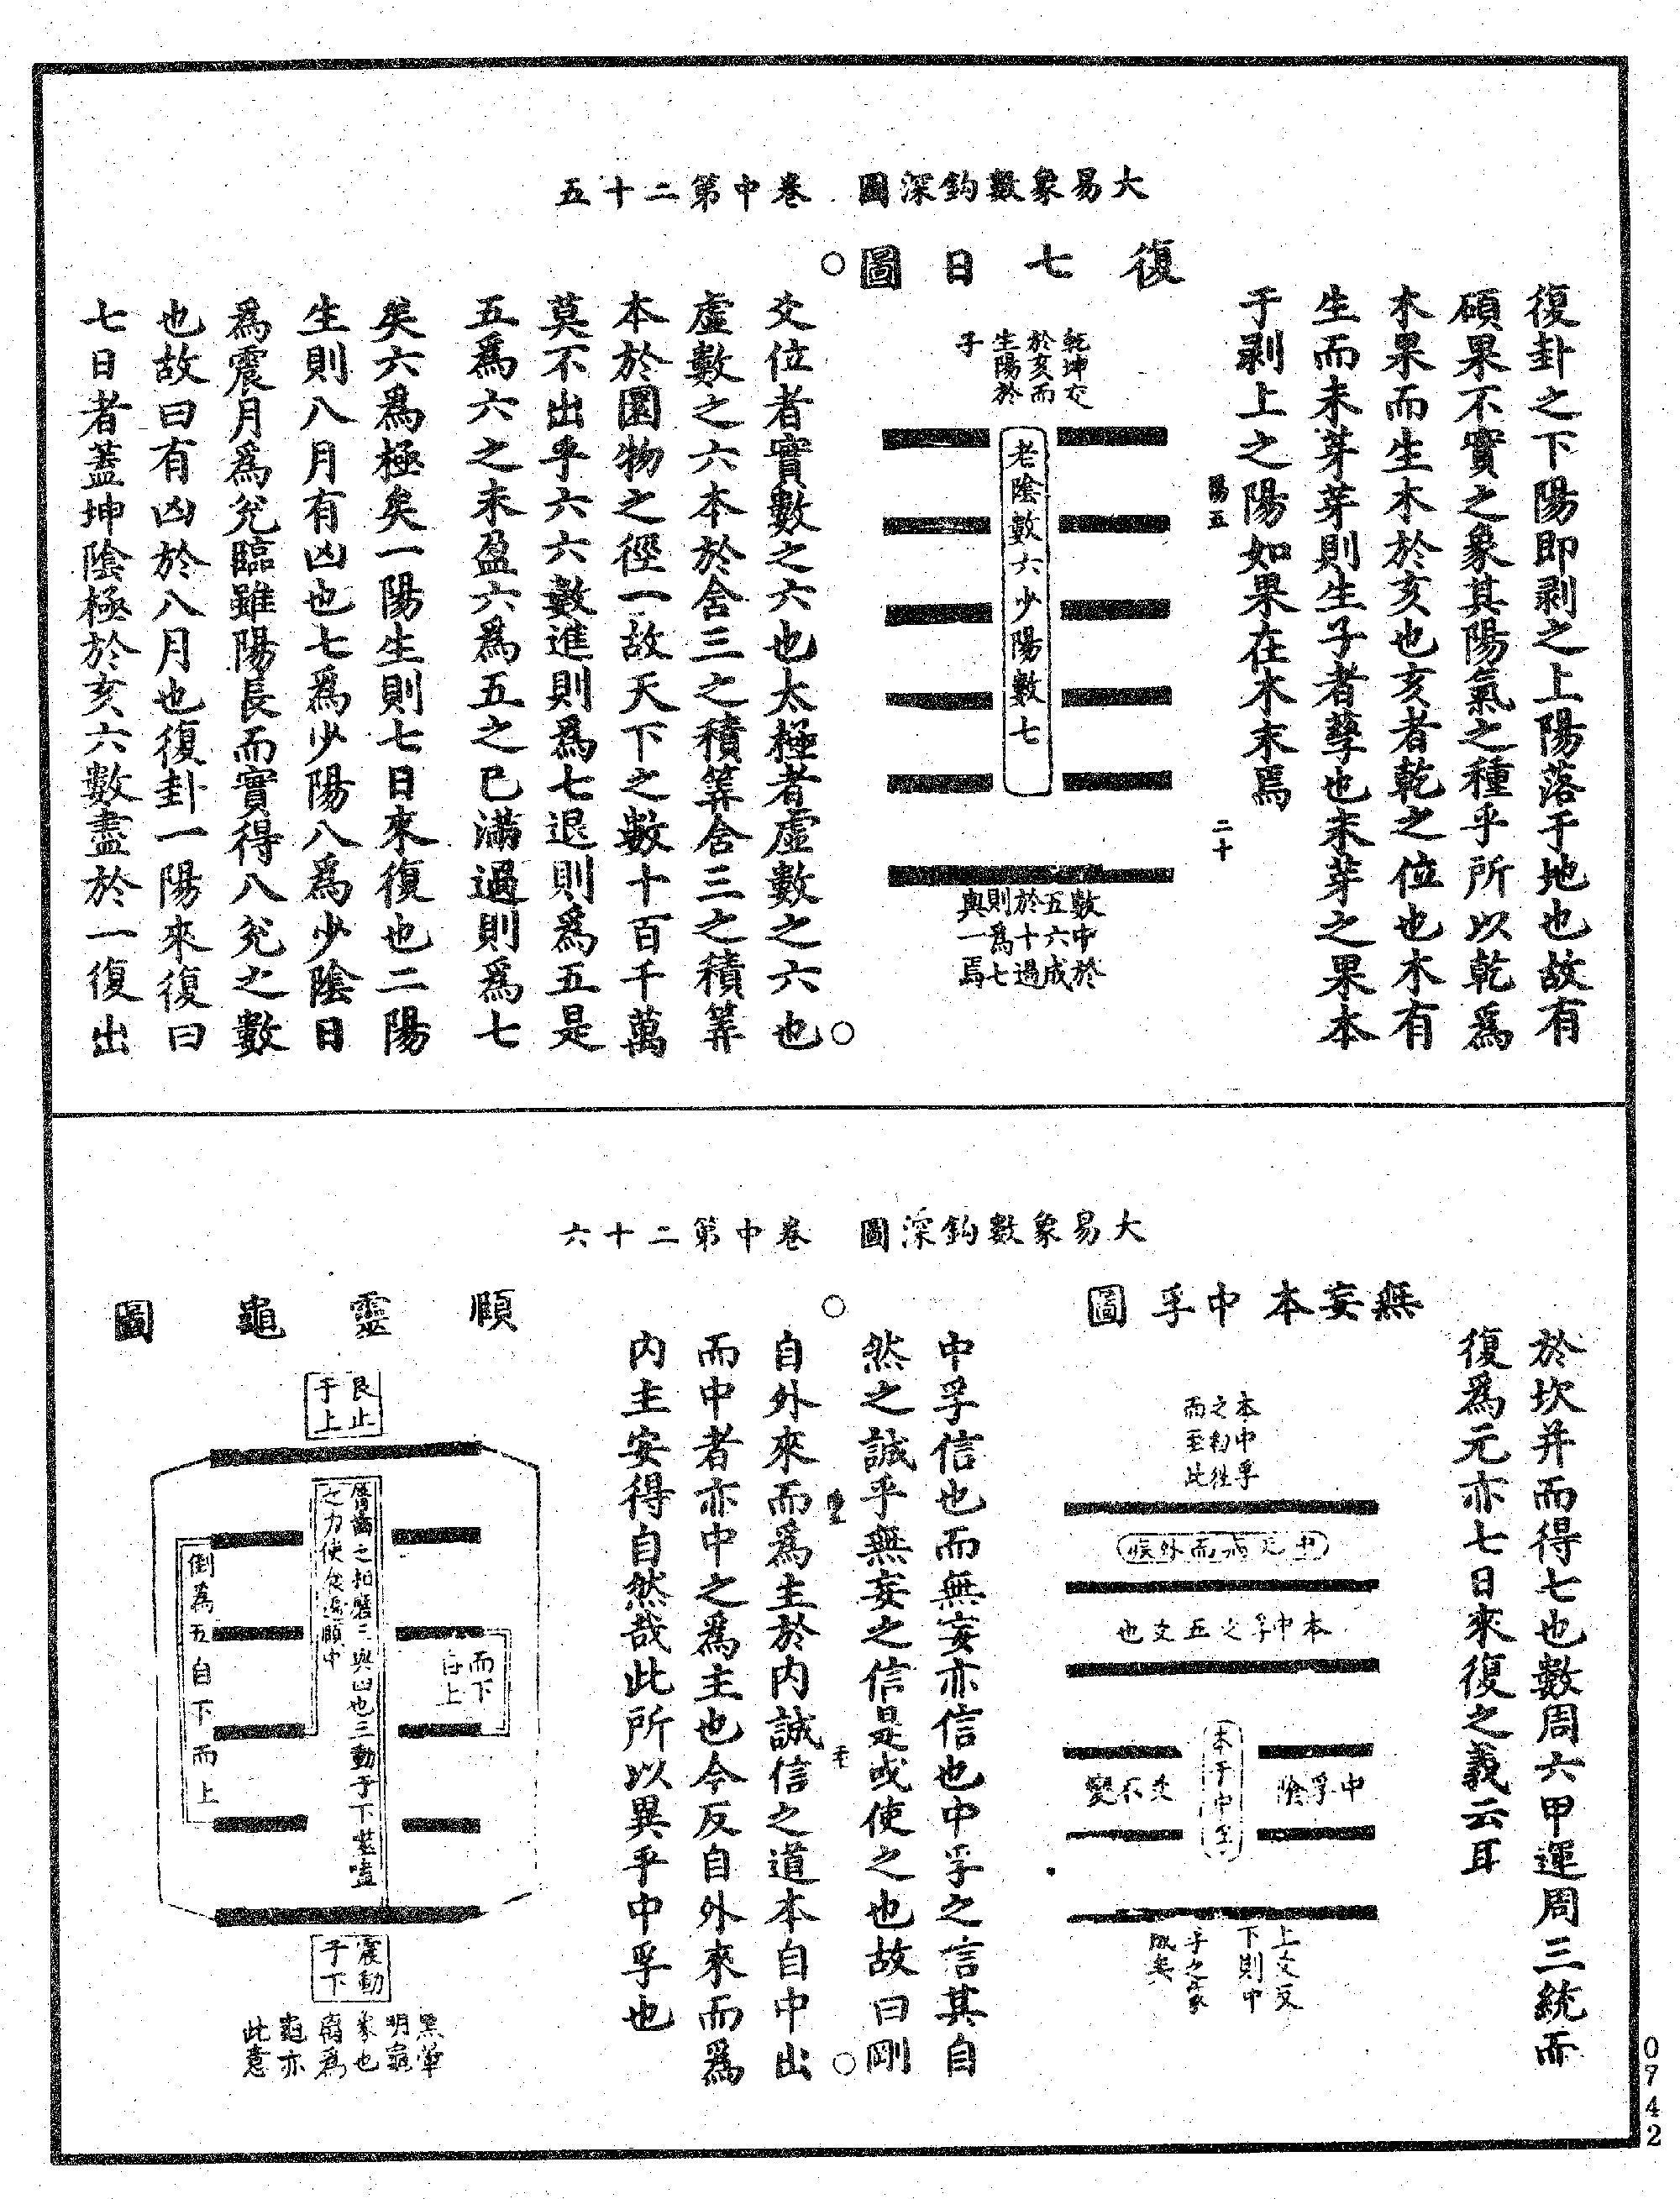 大易象數鈎深圖　卷中第二十五
復卦之下陽即剥之上陽落于地也故有
碩果不實之象其陽氣之種乎所以乾爲
木果而生木於亥也亥者乾之位也木有
生而未芽芽則生子者孽也未芽之果本
于剥上之陽如果在木末焉
陽五
二十
復七日圖
乾坤交
於亥而
生陽於
子
老陰數六少陽數七
數中於
五六成
於十過
則爲七
與一焉
爻位者實數之六也太極者虛數之六也
虛數之六本於含三之積筭含三之積筭
本於圜物之徑一故天下之數十百千萬
莫不出乎六六數進則爲七退則爲五是
五爲六之未盈六爲五之已滿過則爲七
矣六爲極矣一陽生則七日來復也二陽
生則八月有凶也七爲少陽八爲少陰日
爲震月爲兊臨雖陽長而實得八兊之數
也故曰有凶於八月也復卦一陽來復曰
七日者蓋坤陰極於亥六數盡於一復出
大易象數鈎深圖　卷中第二十六
於坎并而得七也數周六甲運周三統而
復爲元亦七日來復之義云耳
無妄本中孚圖
本中孚
之初往
而至此
本中孚之五爻也
中孚陰
爻不變
本于中孚
上爻反
下則中
孚之象
成矣
中孚信也而無妄亦信也中孚之信其自
然之誠乎無妄之信是或使之也故曰剛
自外來而爲主於内誠信之道本自中出
而中者亦中之爲主也今反自外來而爲
内主安得自然哉此所以異乎中孚也
頤靈龜圖
艮止
于上
齒之 三與四也三動于下噬嗑
之力使 頤中
而下
自上
倒爲五自下而上
震動
于下
明龜
象也
離爲
龜亦
此意
0742